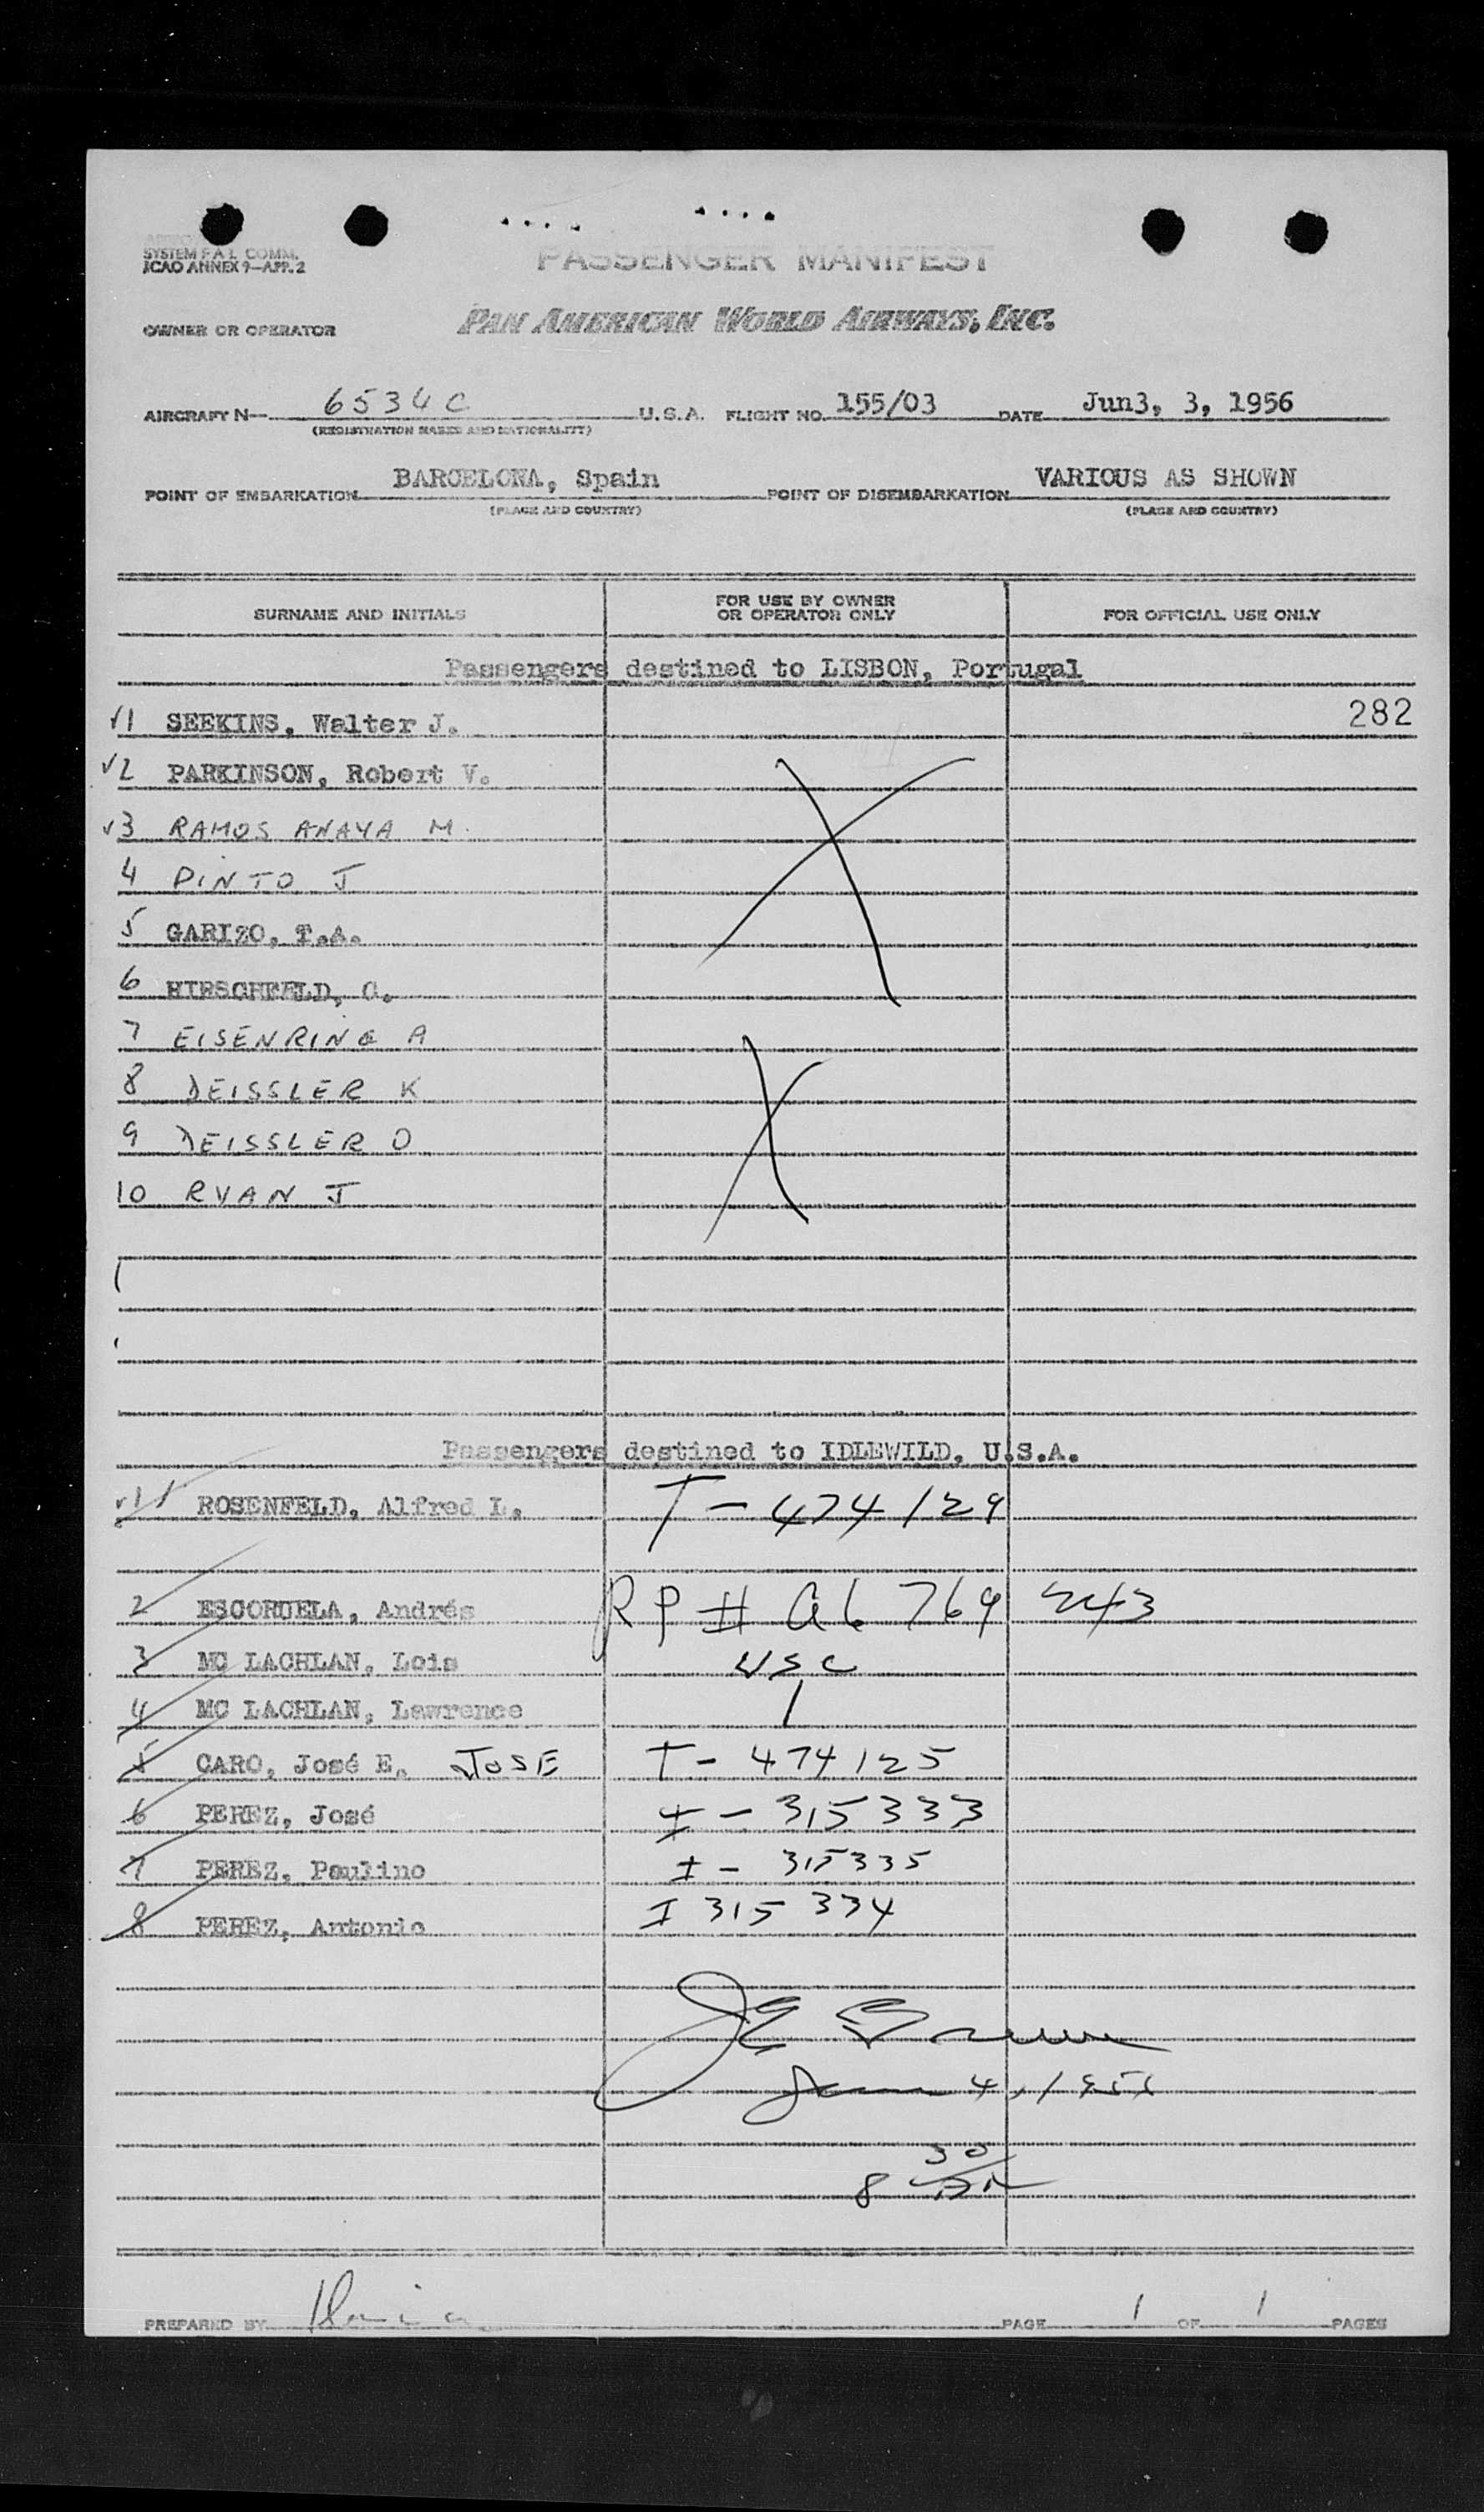 SYSTEM F.A.L. COMM.
ICAO ANNEX 9—APP. 2
PASSENGER MANIFEST
OWNER OR OPERATOR PAN AMERICAN WORLD AIRWAYS, INC.
AIRCRAFT N— 6534C U.S.A. FLIGHT NO. 155/03 DATE Jun3, 3, 1956
(REGISTRATION MARKS AND NATIONALITY)
POINT OF EMBARKATION BARCELONA, Spain POINT OF DISEMBARKATION VARIOUS AS SHOWN
(PLACE AND COUNTRY) (PLACE AND COUNTRY)
SURNAME AND INITIALS FOR USE BY OWNER OR OPERATOR ONLY FOR OFFICIAL USE ONLY
Passengers destined to LISBON, Portugal
√1 SEEKINS, Walter J. 282
√2 PARKINSON, Robert V.
√3 RAMOS ANAYA M.
4 PINTO J
5 GARIZO, T.A.
6 HIRSCHFELD, C.
7 EISENRING A
8 DEISSLER K
9 DEISSLER O
10 RYAN J
Passengers destined to IDLEWILD, U.S.A.
√1 ROSENFELD, Alfred L. T-474129
2 ESCORUELA, Andrés RP # A6 769 243
3 MC LACHLAN, Lois USC
4 MC LACHLAN, Lawrence
5 CARO, José E. JOSE T-474125
6 PEREZ, José I-315333
7 PEREZ, Paulino I-315335
8 PEREZ, Antonio I 315 334
June 4, 1956
8 30
PREPARED BY PAGE 1 OF 1 PAGES